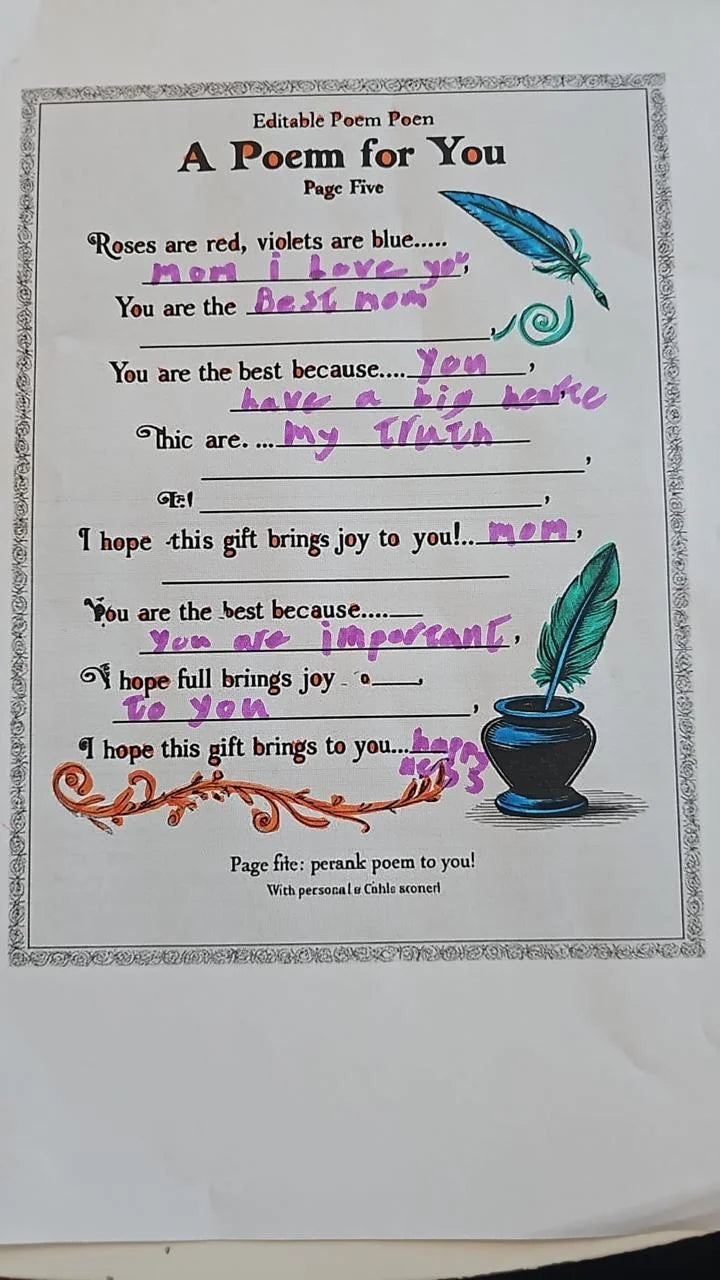 Editable Poem Poen
A Poem for You
Page Five
Roses are red, violets are blue.....
mom i Love you,
You are the Best mom
,
You are the best because.... you,
have a big hearte
Thic are. ... My Truth
,
,
I hope this gift brings joy to you!.. mom,
You are the best because....
you are important,
I hope full briings joy
to you,
I hope this gift brings to you... happ
ness
Page fite: perank poem to you!
With personal